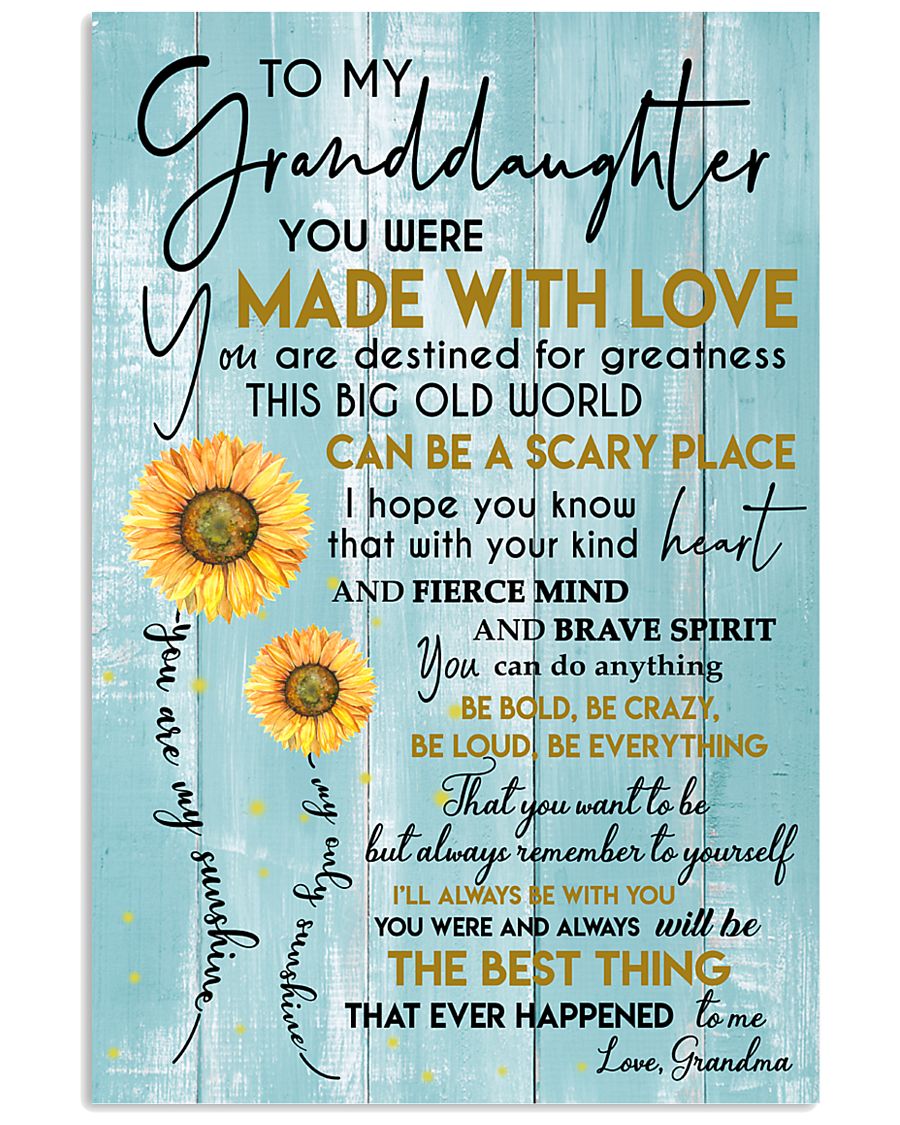 TO MY
Granddaughter
YOU WERE
MADE WITH LOVE
You are destined for greatness
THIS BIG OLD WORLD
CAN BE A SCARY PLACE
I hope you know
that with your kind heart
AND FIERCE MIND
AND BRAVE SPIRIT
You can do anything
BE BOLD, BE CRAZY,
BE LOUD, BE EVERYTHING
That you want to be
but always remember to yourself
I'LL ALWAYS BE WITH YOU
YOU WERE AND ALWAYS will be
THE BEST THING
THAT EVER HAPPENED to me
Love, Grandma
you are my sunshine
my only sunshine